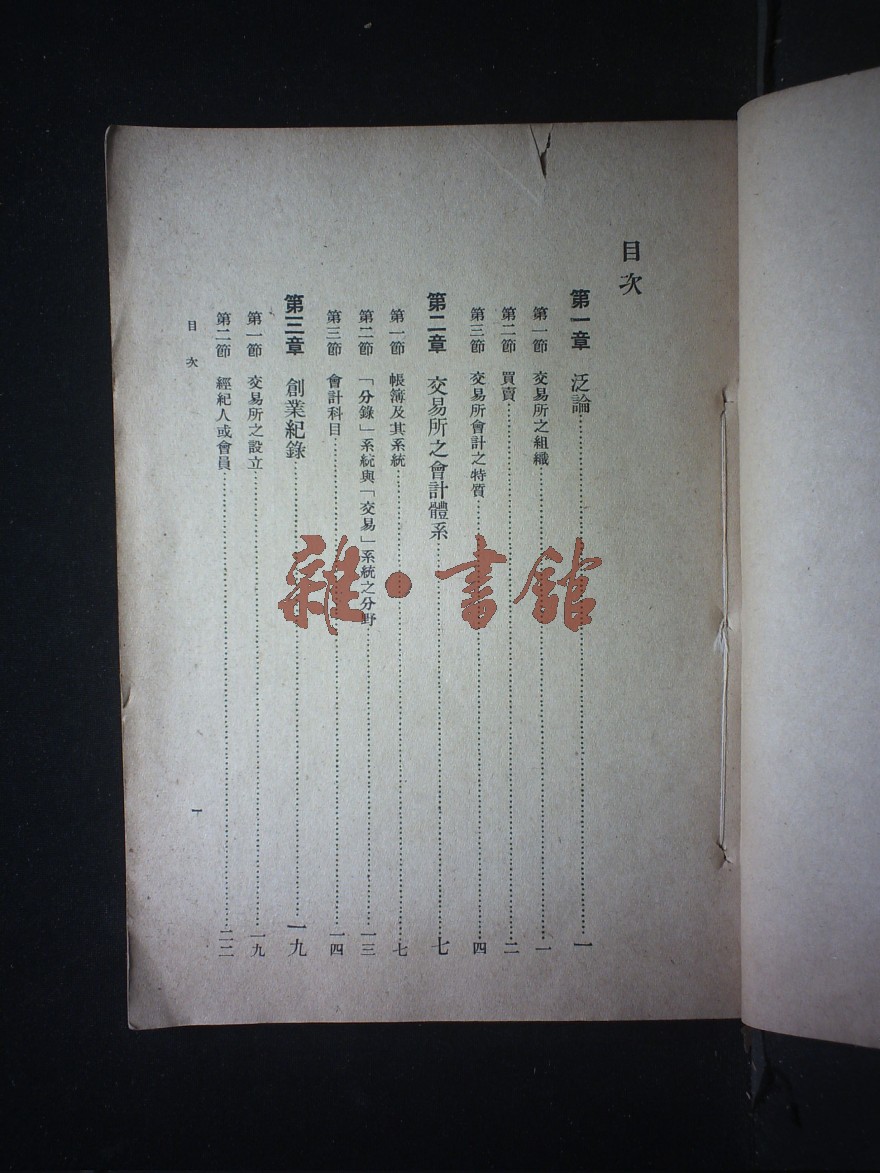 目次
第一章　泛論……一
第一節　交易所之組織……一
第二節　買賣……二
第三節　交易所會計之特質……四
第二章　交易所之會計體系……七
第一節　帳簿及其系統……七
第二節　「分錄」系統與「交易」系統之分野……一三
第三節　會計科目……一四
第三章　創業紀錄……一九
第一節　交易所之設立……一九
第二節　經紀人或會員……二二
目次
一
雜·書館